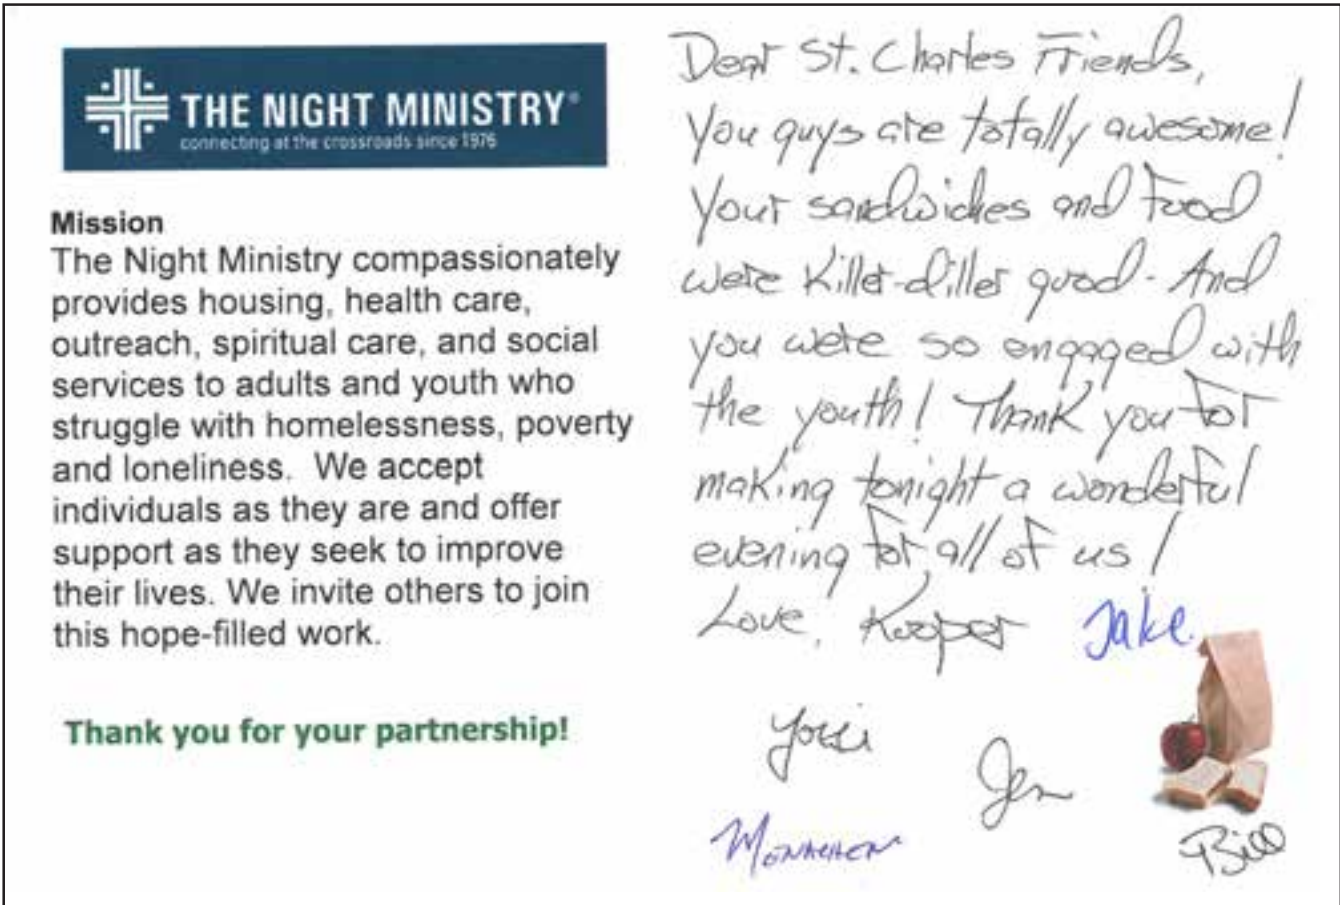 THE NIGHT MINISTRY®
connecting at the crossroads since 1976
Mission
The Night Ministry compassionately
provides housing, health care,
outreach, spiritual care, and social
services to adults and youth who
struggle with homelessness, poverty
and loneliness. We accept
individuals as they are and offer
support as they seek to improve
their lives. We invite others to join
this hope-filled work.
Thank you for your partnership!
Dear St. Charles Friends,
You guys are totally awesome!
Your sandwiches and food
were Killer-diller good - And
you were so engaged with
the youth! Thank you for
making tonight a wonderful
evening for all of us!
Love, Kooper Jake
Jen
Bill